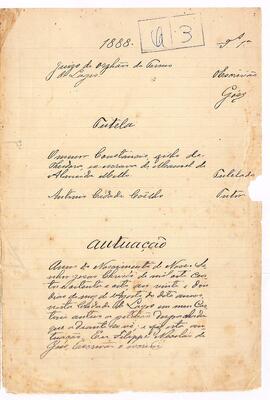 1888.
63
Juizo de Orphãos do Termo
de Lages
Escrivão
Góes
Tutela
O menor Constancio, filho de
Theodora, ex-escrava de Manoel de
Almeida
Tutelado
Antonio Coêlho
Tutor
Autuação
Anno do Nascimento de Nosso Se
nhor Jesus Christo de mil oito cen
tos e oitenta e oito aos vinte e dous
dias do mez de Agosto do dito anno
nesta Cidade de Lages em meu Car
torio autuo a petição despachada
que adiante se vê; e faço esta au
tuação. Eu Filippe Nicolau de
Góes, escrivão o escrevi